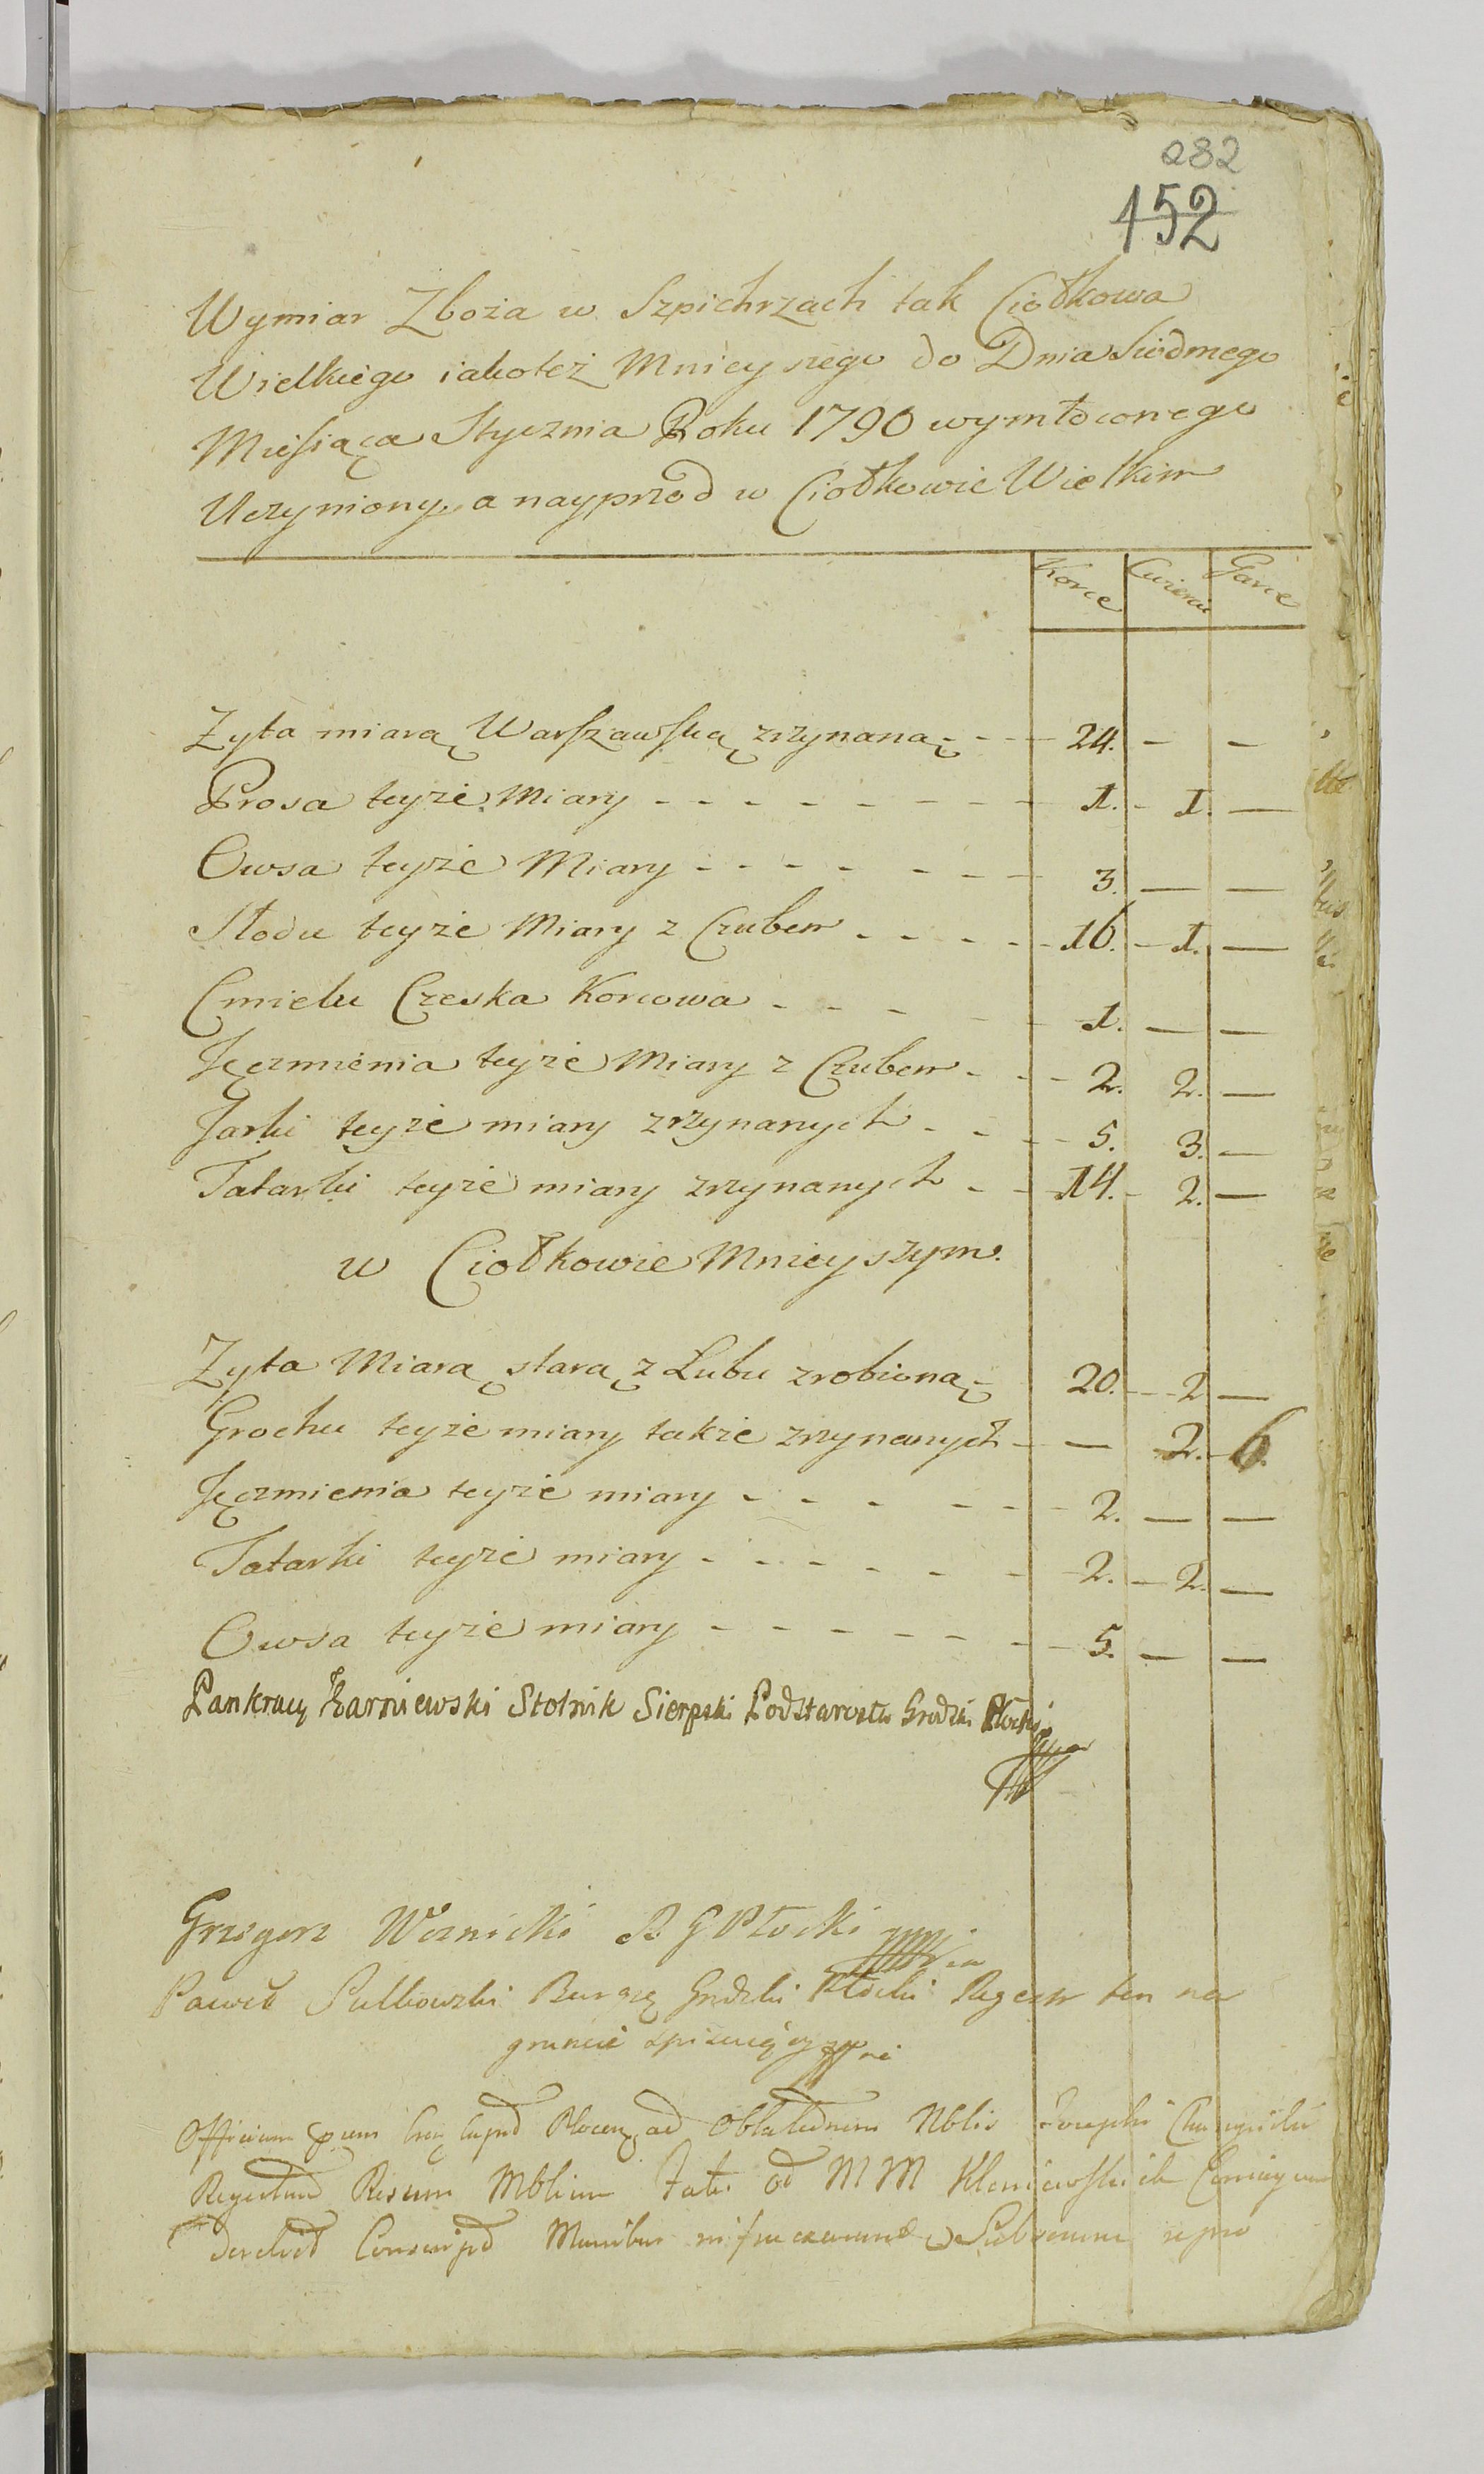 282
152
Wymiar Zboża w Szpichrzach tak Ciołkowa
Wielkiego iakoteż Mnieyszego do Dnia Siódmego
Miesiąca Stycznia Roku 1790 wymłoconego
Uczyniony, a nayprzod w Ciołkowie Wielkim
Korce Cwierci Garce
Zyta miarą Warszawską zrzynaną - - - 24. - -
Prosa teyże Miary - - - - - - - - 1. - 1. —
Owsa teyże Miary - - - - - - - 3. — —
Słodu teyże Miary z Czubem - - - - 16. - 1. —
Cmielu Czeska Korcowa - - - - - 1. — —
Jęczmienia teyże Miary z Czubem - - - 2. 2. —
Jarki teyże miary zrzynanych - - - 5. 3. —
Tatarki teyże miary zrzynanych - - 14. - 2. —
w Ciołkowie Mnieyszym.
Zyta Miarą starą z Łubu zrobioną - 20. - - 2 —
Grochu teyże miary także zrzynanych - — 2. - 6.
Jęczmienia teyże miary - - - - - - 2. — —
Tatarki teyże miary - - - - - - - 2. — 2. —
Owsa teyże miary - - - - - - - - 5. — —
Pankracy Karniewski Stolnik Sierpski Podstarosta Grodzki Płocki
Grzegorz Woznicki R G Płocki
Paweł Sulkowski Burgr Grodzki Płocki Regestr ten na
gruncie spisuiący
Officium ad Oblatam Nblis Josephi
MM
Manibus